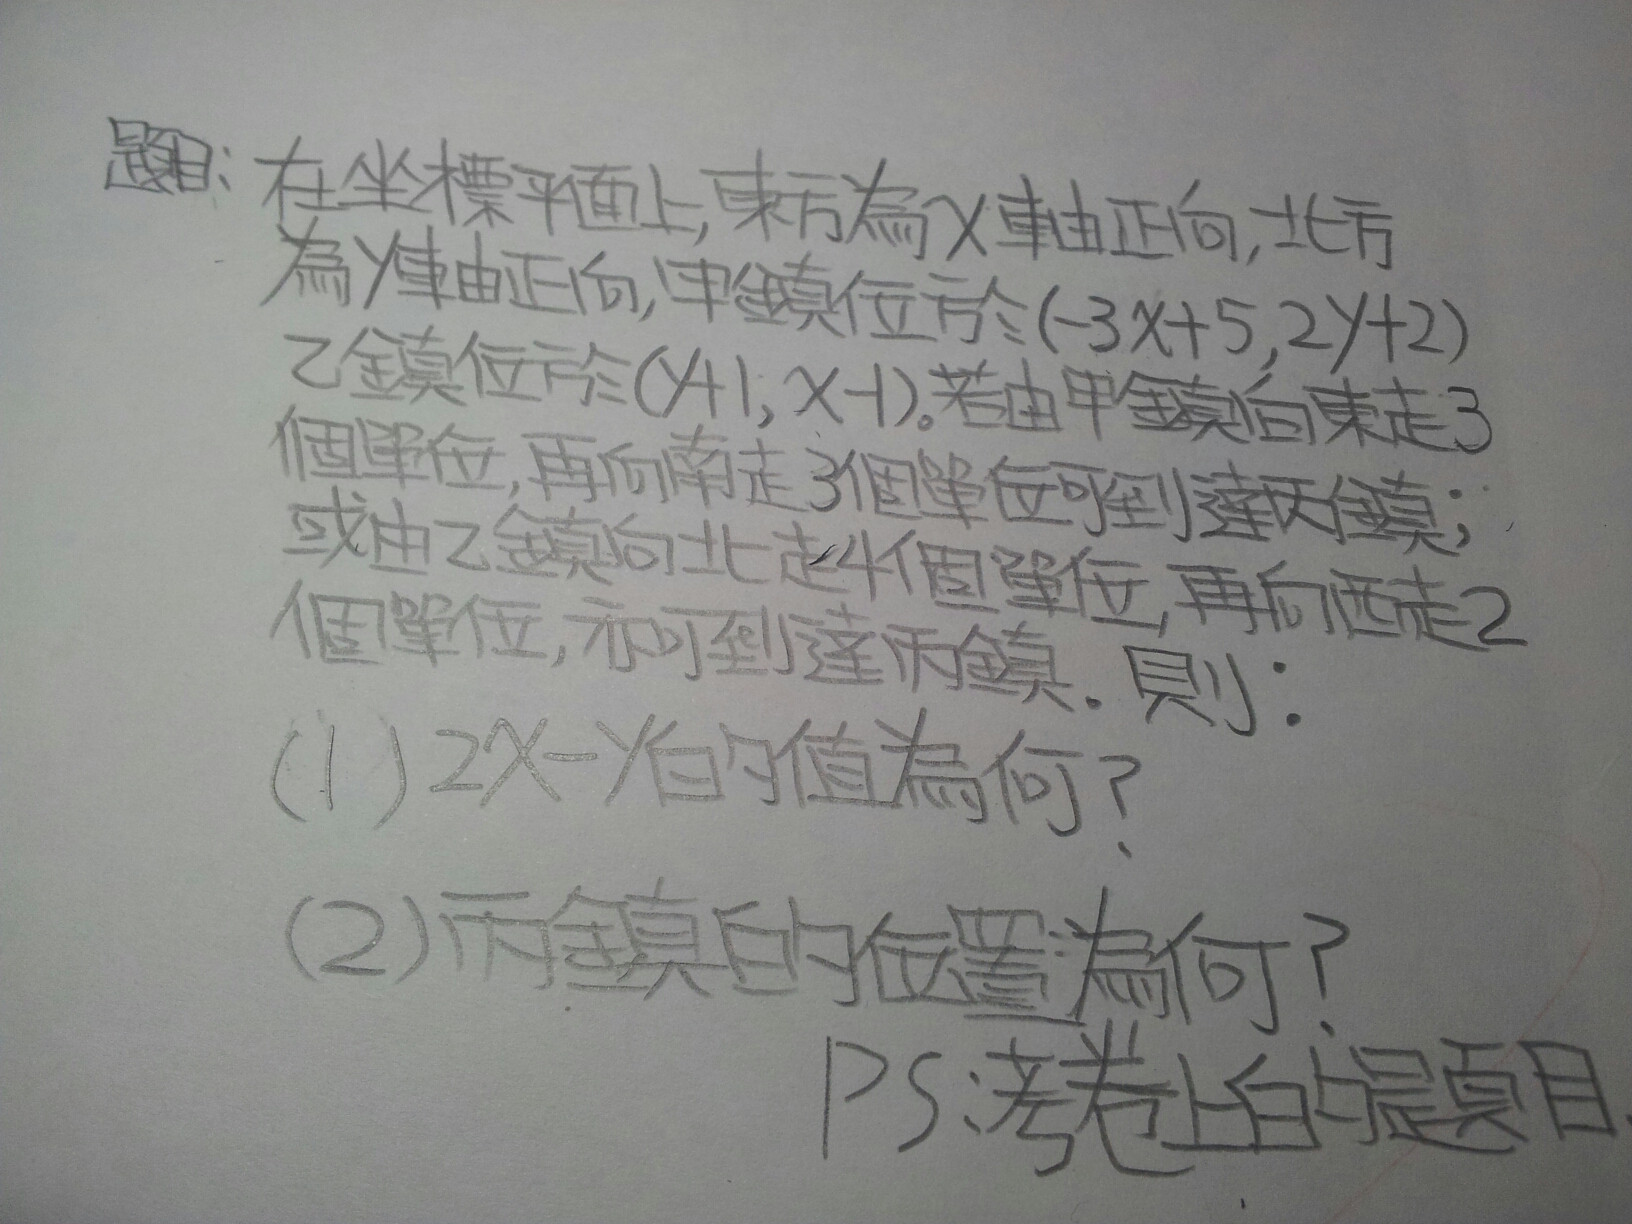 題目:在坐標平面上,東方為X軸正向,北方
為Y軸正向,甲鎮位於(-3X+5,2Y+2)
乙鎮位於(Y+1,X-1)。若由甲鎮向東走3
個單位,再向南走3個單位可到達丙鎮;
或由乙鎮向北走4個單位,再向西走2
個單位,亦可到達丙鎮.則:
(1)2X-Y的值為何?
(2)丙鎮的位置為何?
PS:考卷上的題目.